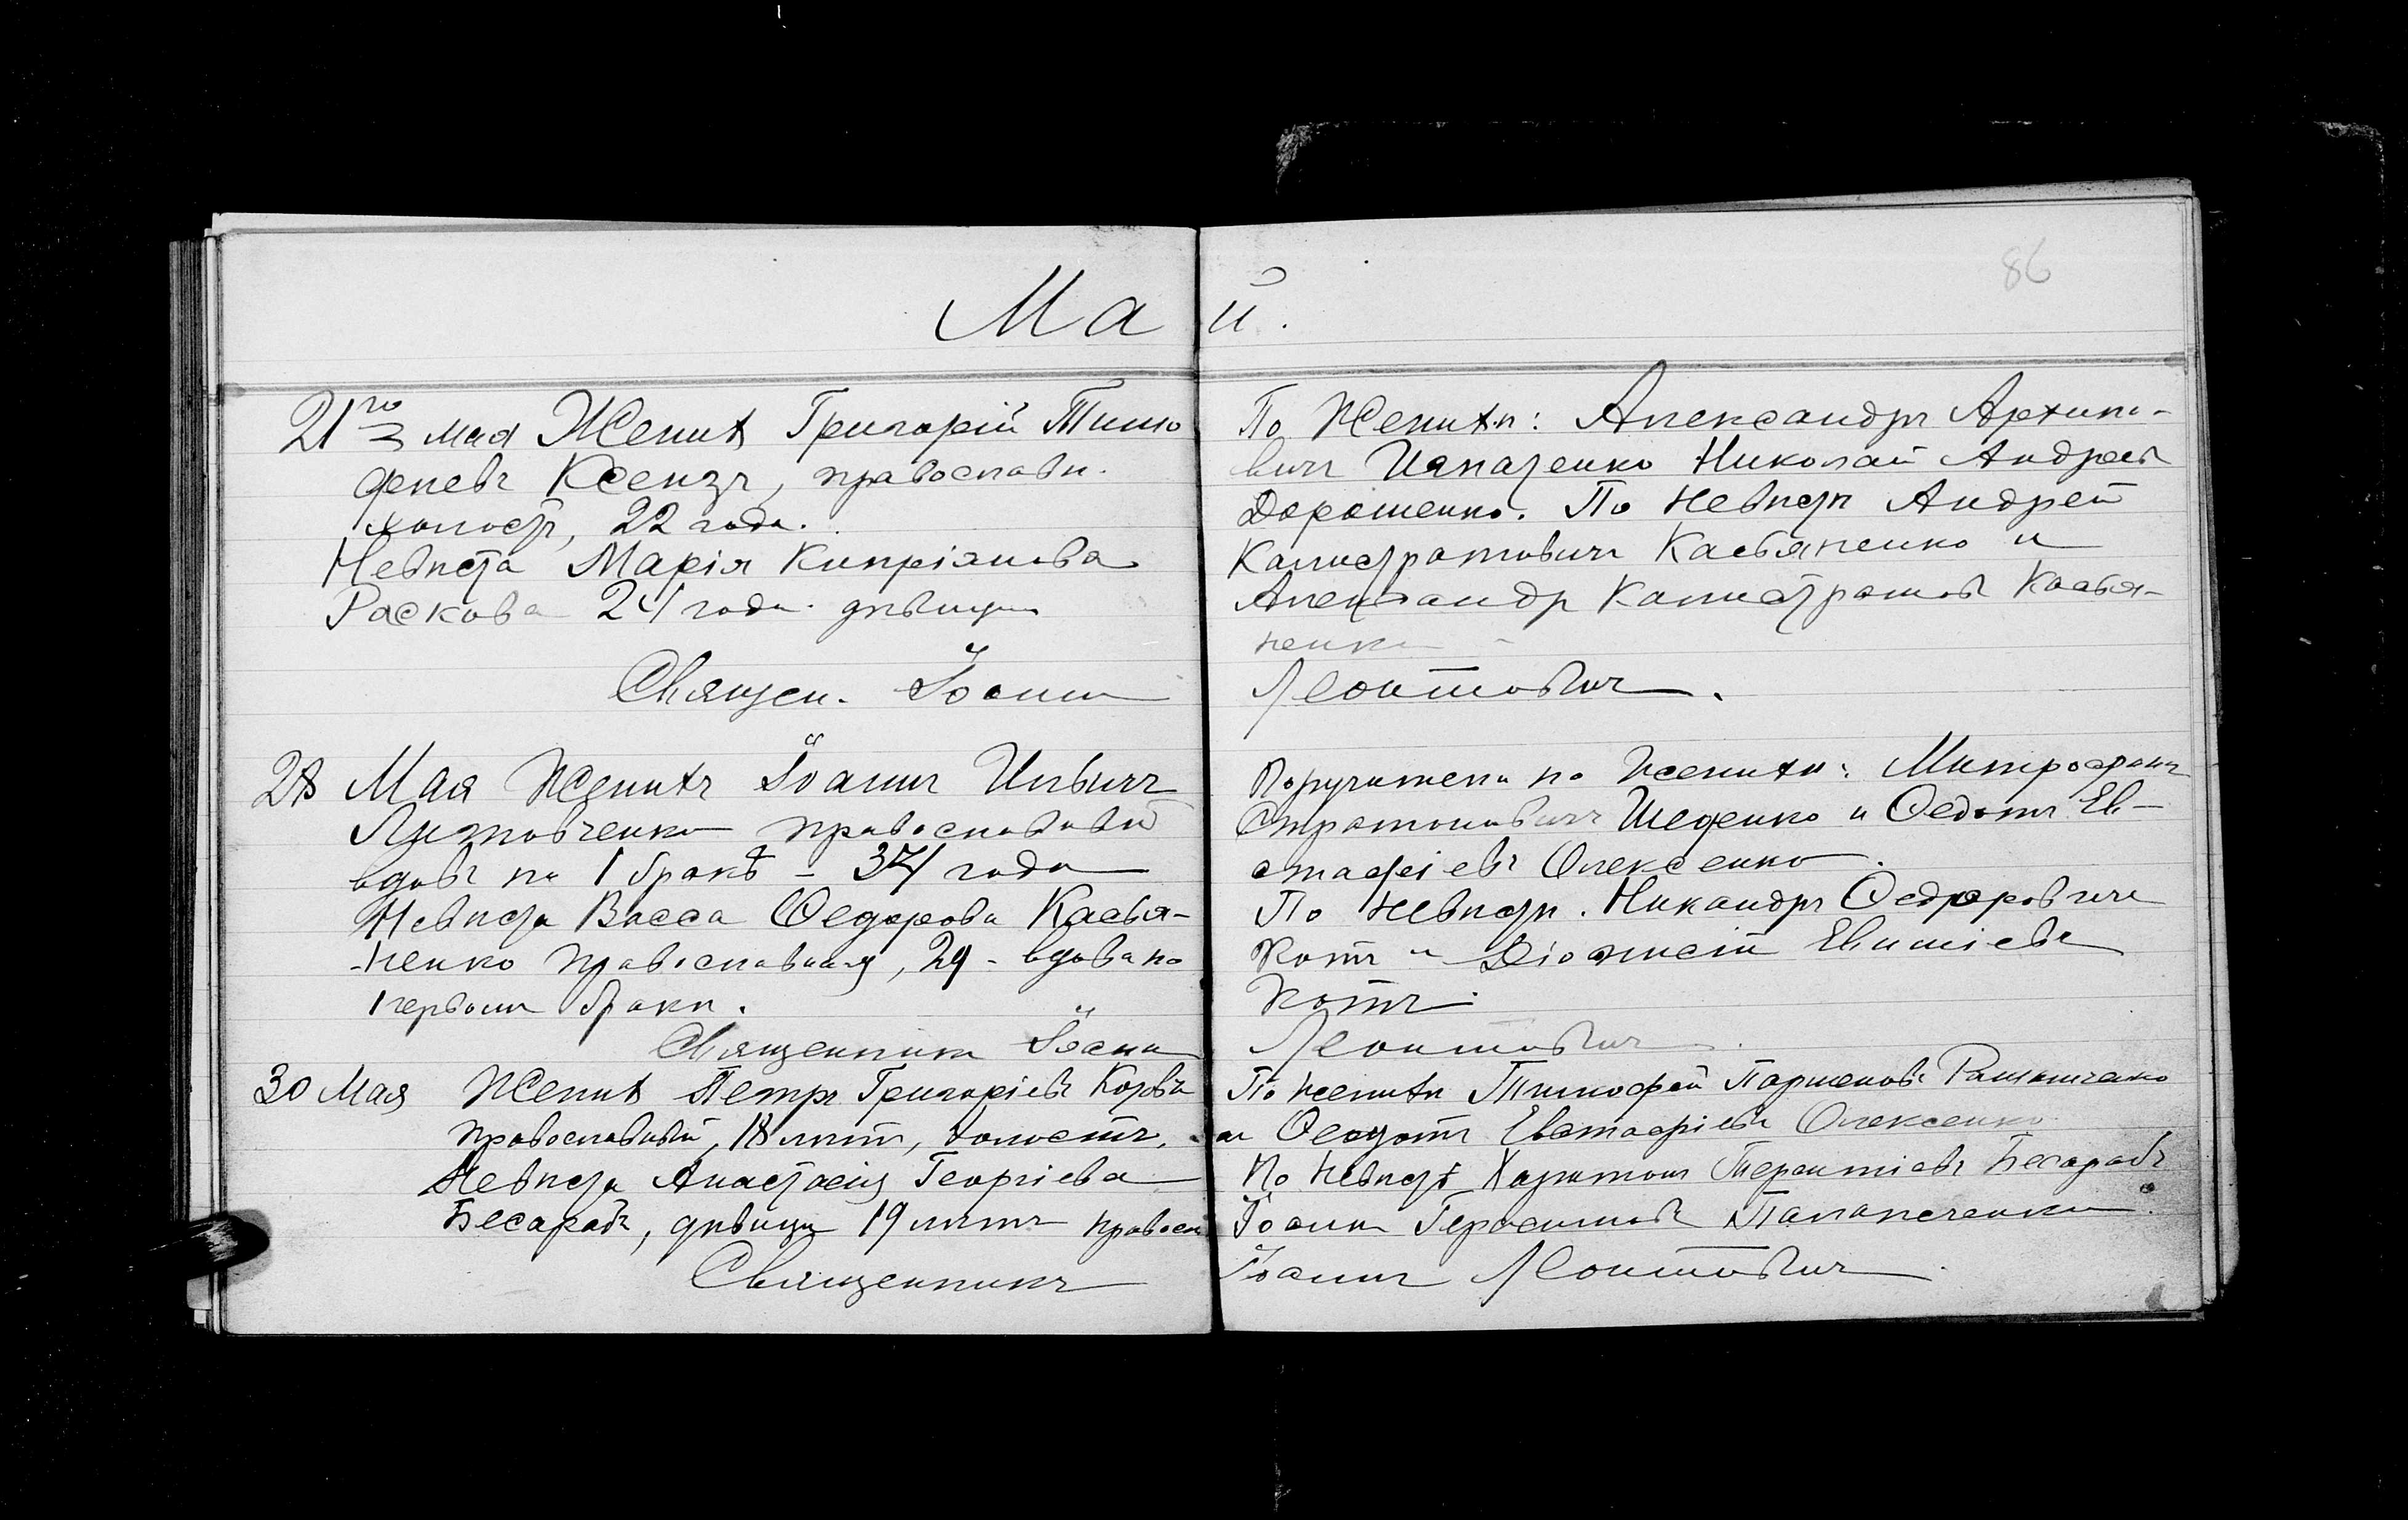 Май.
86
21го Мая Женихъ Григорій Тимо
феевъ Ксензъ, православн.
холостъ, 22 года.
Невѣста Марія Кипріянова
Раскова 24 года дѣвица
Священ. Іоаннъ
28 Мая Женихъ Іоаннъ Ильичъ
Литовченко православный
вдовъ по 1 бракѣ – 34 года
Невѣста Васса Ѳедорова Касья-
ненко православная, 29 – вдова по
первомъ бракѣ.
Священникъ Іоаннъ
30 Мая Женихъ Петръ Григоріевъ
православный, 18 лѣтъ, холостъ.
Невѣста Анастасія Георгіева
Бесарабъ, дѣвица 19 лѣтъ правосл
Священникъ
По Женихѣ: Александръ Архипо-
вичъ Николай Андреевъ
Дорошенко. По невѣстѣ Андрей
Калистратовичъ Касьяненко и
Александръ Калистратовъ Касья-
ненко
Леонтовичъ.
Поручители по женихѣ: Митрофанъ
Стратоновичъ и Ѳедотъ Ев-
стафіевъ Олексенко.
По невѣстѣ. Никандръ Ѳедоровичъ
Котъ и
Котъ.
Леонтовичъ.
По женихѣ Тимофей Парменовъ
и Ѳеодотъ Евстафіевъ Олексенко
По невѣстѣ Харитонъ Терентіевъ Бесарабъ
Іоаннъ Герасимовъ
Іоаннъ Леонтовичъ.